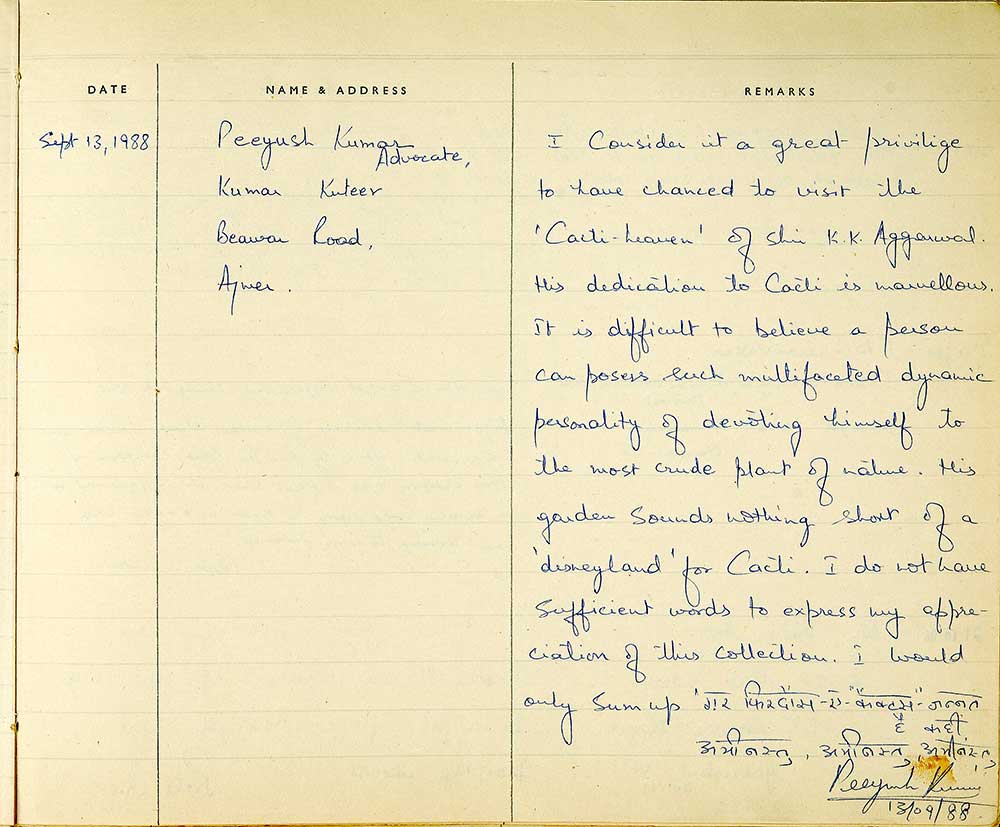 DATE NAME & ADDRESS REMARKS
Sept 13, 1988
Peeyush Kumar
Advocate,
Kumar Kuteer
Beawar Road,
Ajmer.
I Consider it a great privilige
to have chanced to visit the
'Cacti-heaven' of shri K.K. Aggarwal.
His dedication to Cacti is marvellous.
It is difficult to believe a person
can posess such multifaceted dynamic
personality of devoting himself to
the most crude plant of nature. His
garden Sounds nothing short of a
'disneyland' for Cacti. I do not have
Sufficient words to express my appre-
ciation of this collection. I would
only Sum up 'गर फिरदौस-ऐ-"कैक्टस" जन्नत
है कहीं
अमीनस्तु, अमीनस्तु, अमीनस्तु
Peeyush Kumar
13/09/88.